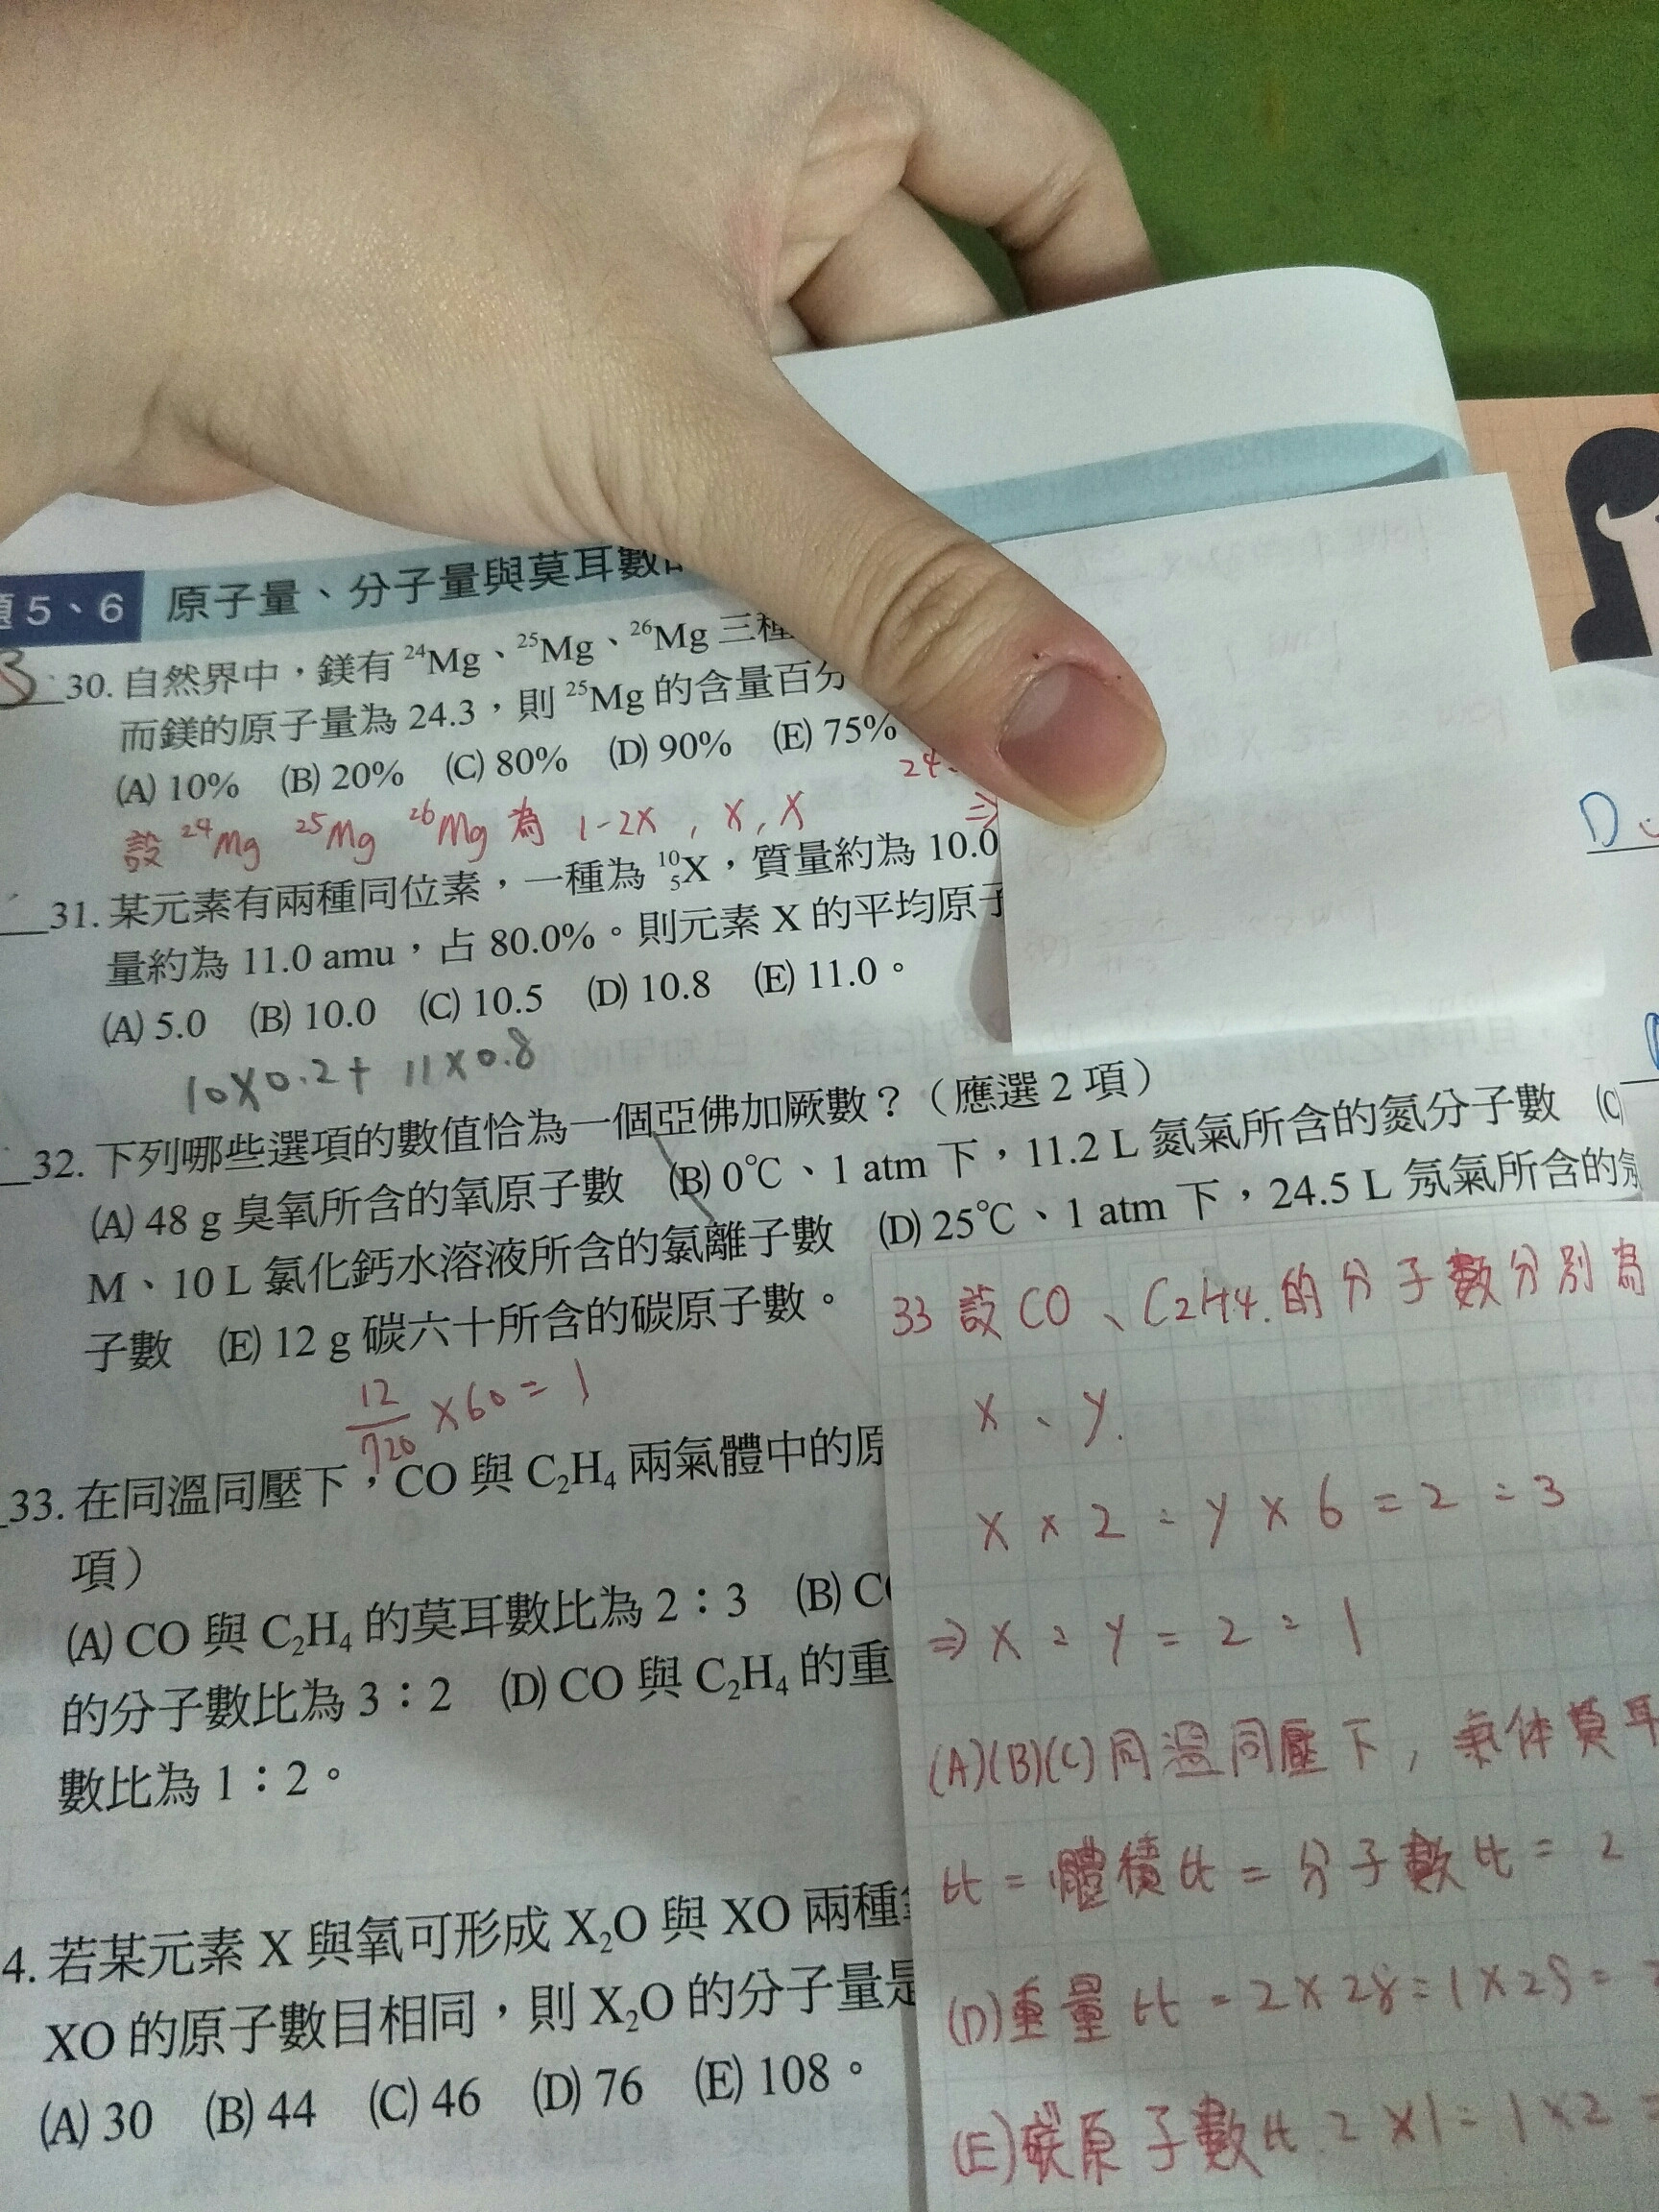 題5、6 原子量、分子量與莫耳數
30. 自然界中，鎂有 ²⁴Mg、²⁵Mg、²⁶Mg 三種
而鎂的原子量為 24.3，則 ²⁵Mg 的含量百分
(A) 10% (B) 20% (C) 80% (D) 90% (E) 75%
24.
設 ²⁴Mg ²⁵Mg ²⁶Mg 為 1-2x , x , x ⇒
31. 某元素有兩種同位素，一種為 ¹⁰₅X，質量約為 10.0
量約為 11.0 amu，占 80.0%。則元素 X 的平均原子
(A) 5.0 (B) 10.0 (C) 10.5 (D) 10.8 (E) 11.0。
10×0.2+ 11×0.8
32. 下列哪些選項的數值恰為一個亞佛加厥數？（應選 2 項）
(A) 48 g 臭氧所含的氧原子數 (B) 0℃、1 atm 下，11.2 L 氮氣所含的氮分子數 (C)
M、10 L 氯化鈣水溶液所含的氯離子數 (D) 25℃、1 atm 下，24.5 L 氖氣所含的氖
子數 (E) 12 g 碳六十所含的碳原子數。
12/720 ×60=1
33. 在同溫同壓下，CO 與 C₂H₄ 兩氣體中的原
項）
(A) CO 與 C₂H₄ 的莫耳數比為 2：3 (B) C
的分子數比為 3：2 (D) CO 與 C₂H₄ 的重
數比為 1：2。
4. 若某元素 X 與氧可形成 X₂O 與 XO 兩種
XO 的原子數目相同，則 X₂O 的分子量是
(A) 30 (B) 44 (C) 46 (D) 76 (E) 108。
33 設 CO、C₂H₄.的分子數分別為
x、y.
x×2:y×6=2:3
⇒x:y=2:1
(A)(B)(C)同溫同壓下,氣体莫耳
比=體積比=分子數比=2
(D)重量比=2×28:1×28=
(E)碳原子數比 2×1:1×2=
D